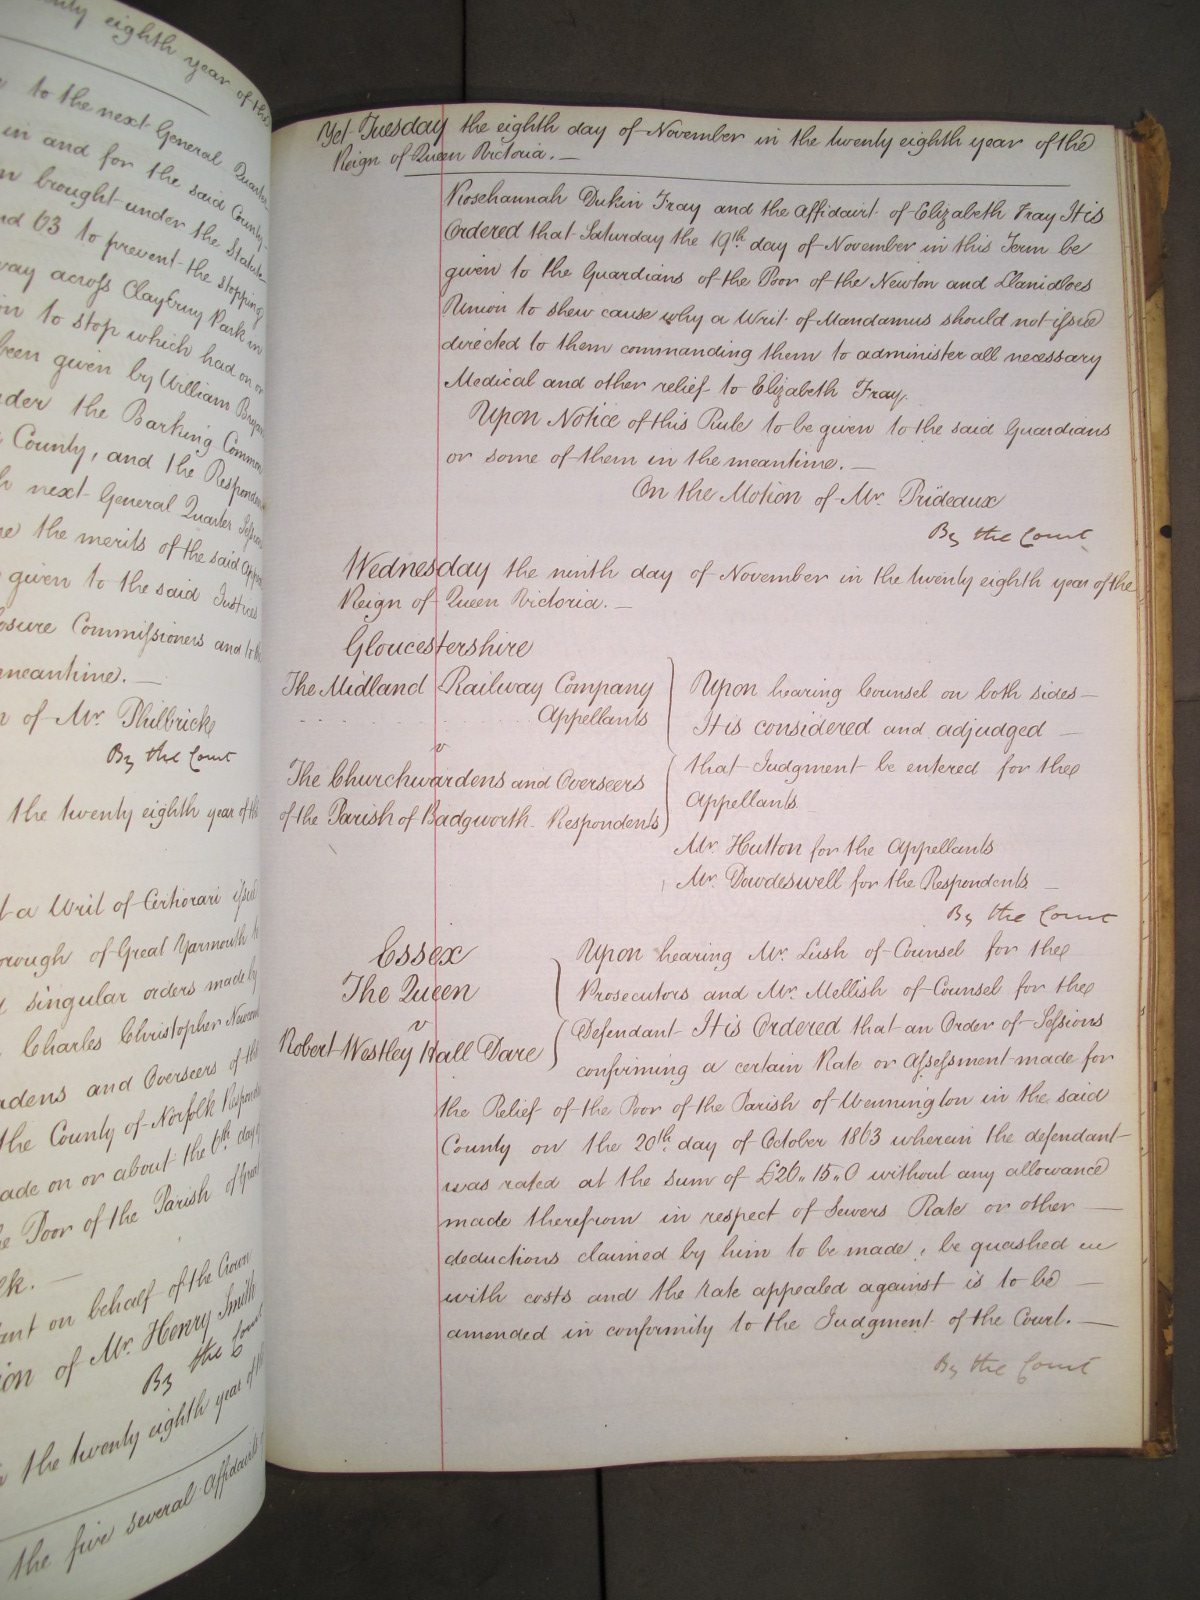 enty eighth year of this
to the next General Quarter
in and for the said County
n brought under the Statute
nd 63 to prevent the stopping
way across Claybury Park in
on to stop which had on or
been given by William Bryan
nder the Barking Common
County, and the Respond
next General Quarter Sessions
ne the merits of the said App
given to the said Justices
osure Commissioners and to th
meantime. —
n of Mr. Philbrick
By the Court
the twenty eighth year of th
t a Writ of Certiorari issue
orough of Great Yarmouth
singular orders made by
Charles Christopher
adens and Overseers of th
the County of Norfolk Respond
ade on or about the 6th day
e Poor of the Parish of Great
lk. —
ant on behalf of the Crown
ion of Mr. Henry Smith
By the Court
the twenty eighth year of th
the five several Affidavits
Yet Tuesday the eighth day of November in the twenty eighth year of the
Reign of Queen Victoria. —
Rosehannah Dukin Fray and the Affidavit of Elizabeth Fray It is
Ordered that Saturday the 19th. day of November in this Term be
given to the Guardians of the Poor of the Newton and Llanidloes
Union to shew cause why a Writ of Mandamus should not issue
directed to them commanding them to administer all necessary
Medical and other relief to Elizabeth Fray.
Upon Notice of this Rule to be given to the said Guardians
or some of them in the meantime. —
On the Motion of Mr. Prideaux
By the Court
Wednesday the ninth day of November in the twenty eighth year of the
Reign of Queen Victoria. —
Gloucestershire
The Midland Railway Company
Appellants
v
The Churchwardens and Overseers
of the Parish of Badgworth Respondents
Upon hearing Counsel on both sides —
It is considered and adjudged —
that Judgment be entered for the
Appellants
Mr. Hutton for the Appellants
Mr. Dowdeswell for the Respondents —
By the Court
Essex
The Queen
v
Robert Westley Hall Dare
Upon hearing Mr. Lush of Counsel for the
Prosecutors and Mr. Mellish of Counsel for the
Defendant It is Ordered that an Order of Sessions
confirming a certain Rate or Assessment made for
the Relief of the Poor of the Parish of Wennington in the said
County on the 20th. day of October 1863 wherein the defendant
was rated at the sum of £26,, 15,, 0 without any allowance
made therefrom in respect of Sewers Rate or other —
deductions claimed by him to be made, be quashed
with costs and the Rate appealed against is to be —
amended in conformity to the Judgment of the Court. —
By the Court